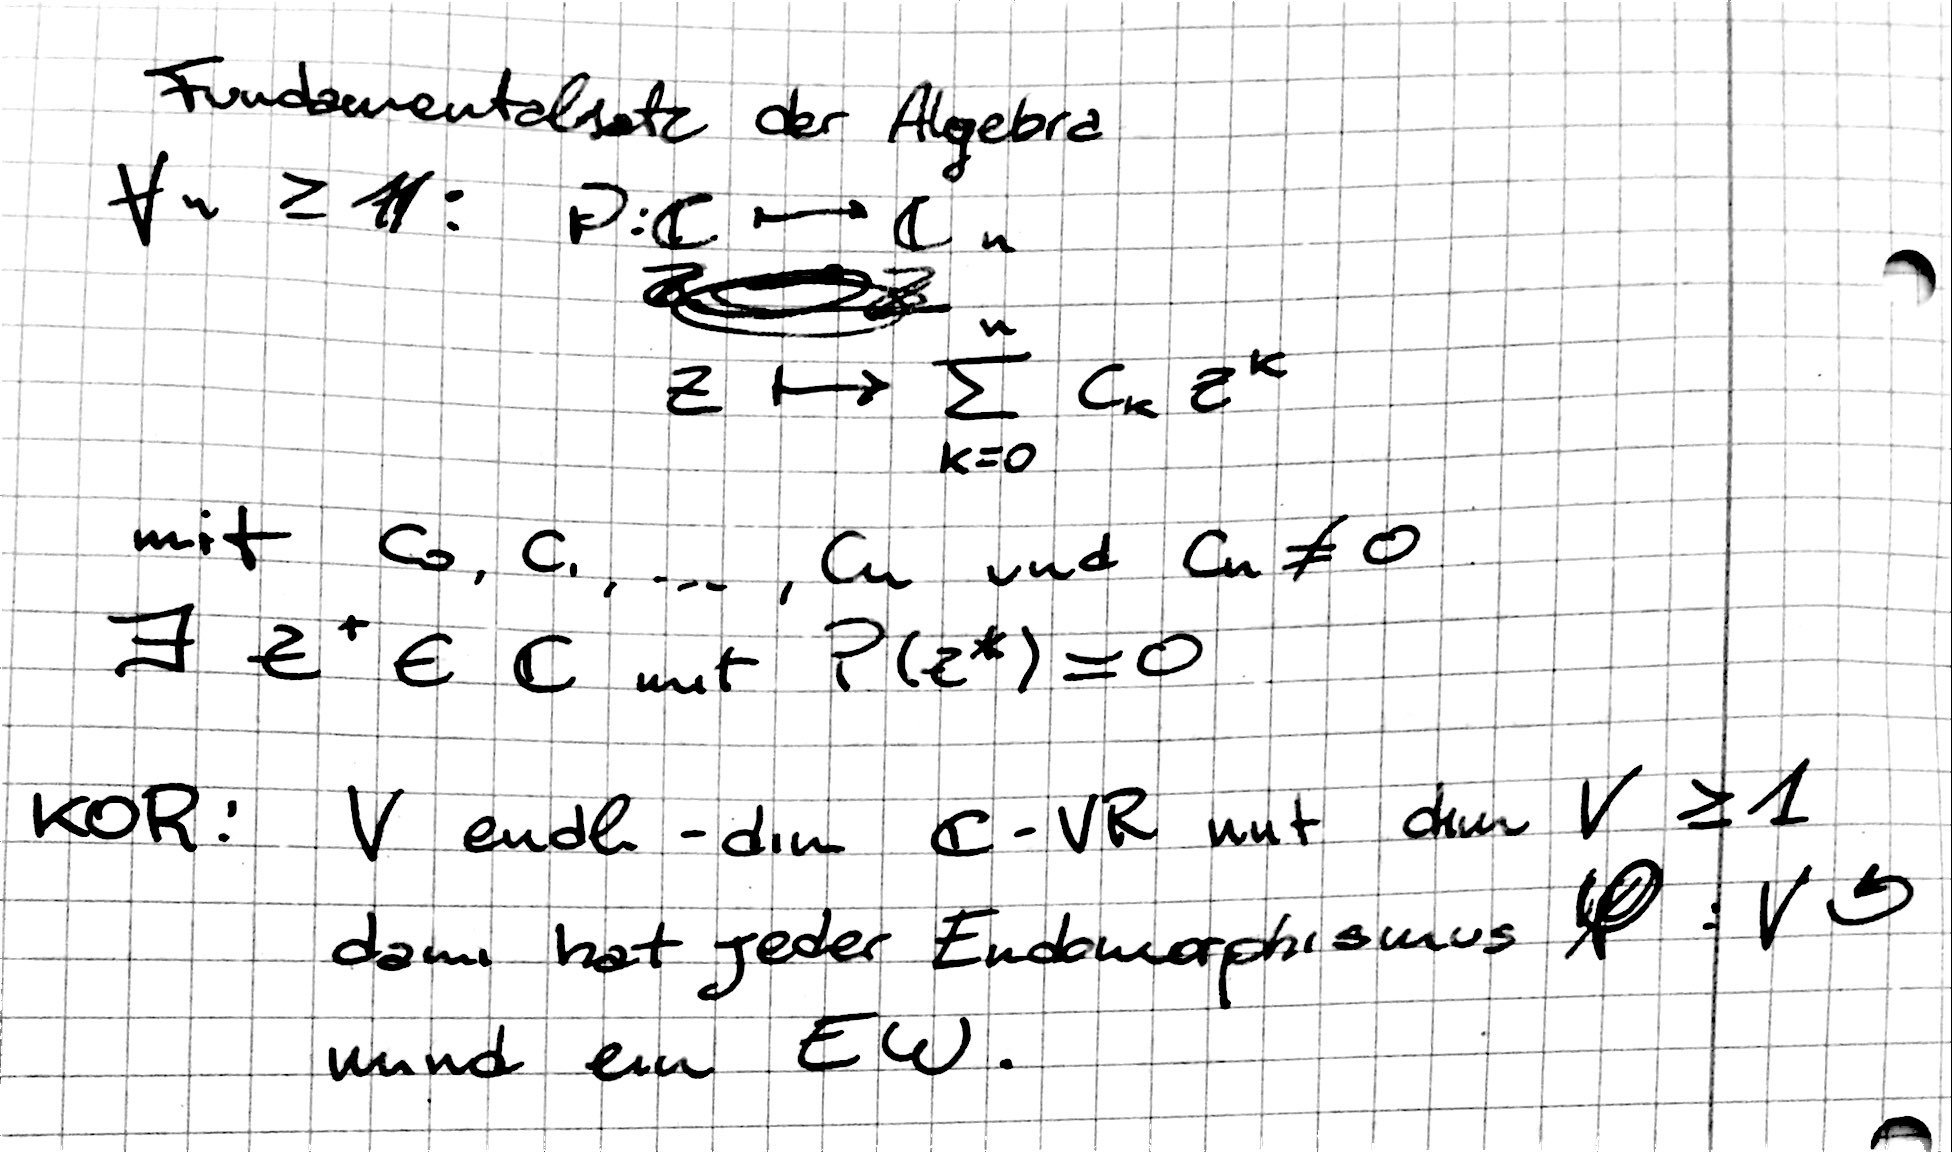 Fundamentalsatz der Algebra
∀n ≥ 1: P: ℂ ↦ ℂ n
z ↦ ∑_{k=0}^{n} C_k z^k
mit C_0, C_1, ..., C_n und C_n ≠ 0
∃ z^+ ∈ ℂ mit P(z^*) = 0
KOR: V endl-dim ℂ-VR mit dim V ≥ 1
dann hat jeder Endomorphismus φ : V ↺
mind ein EW.